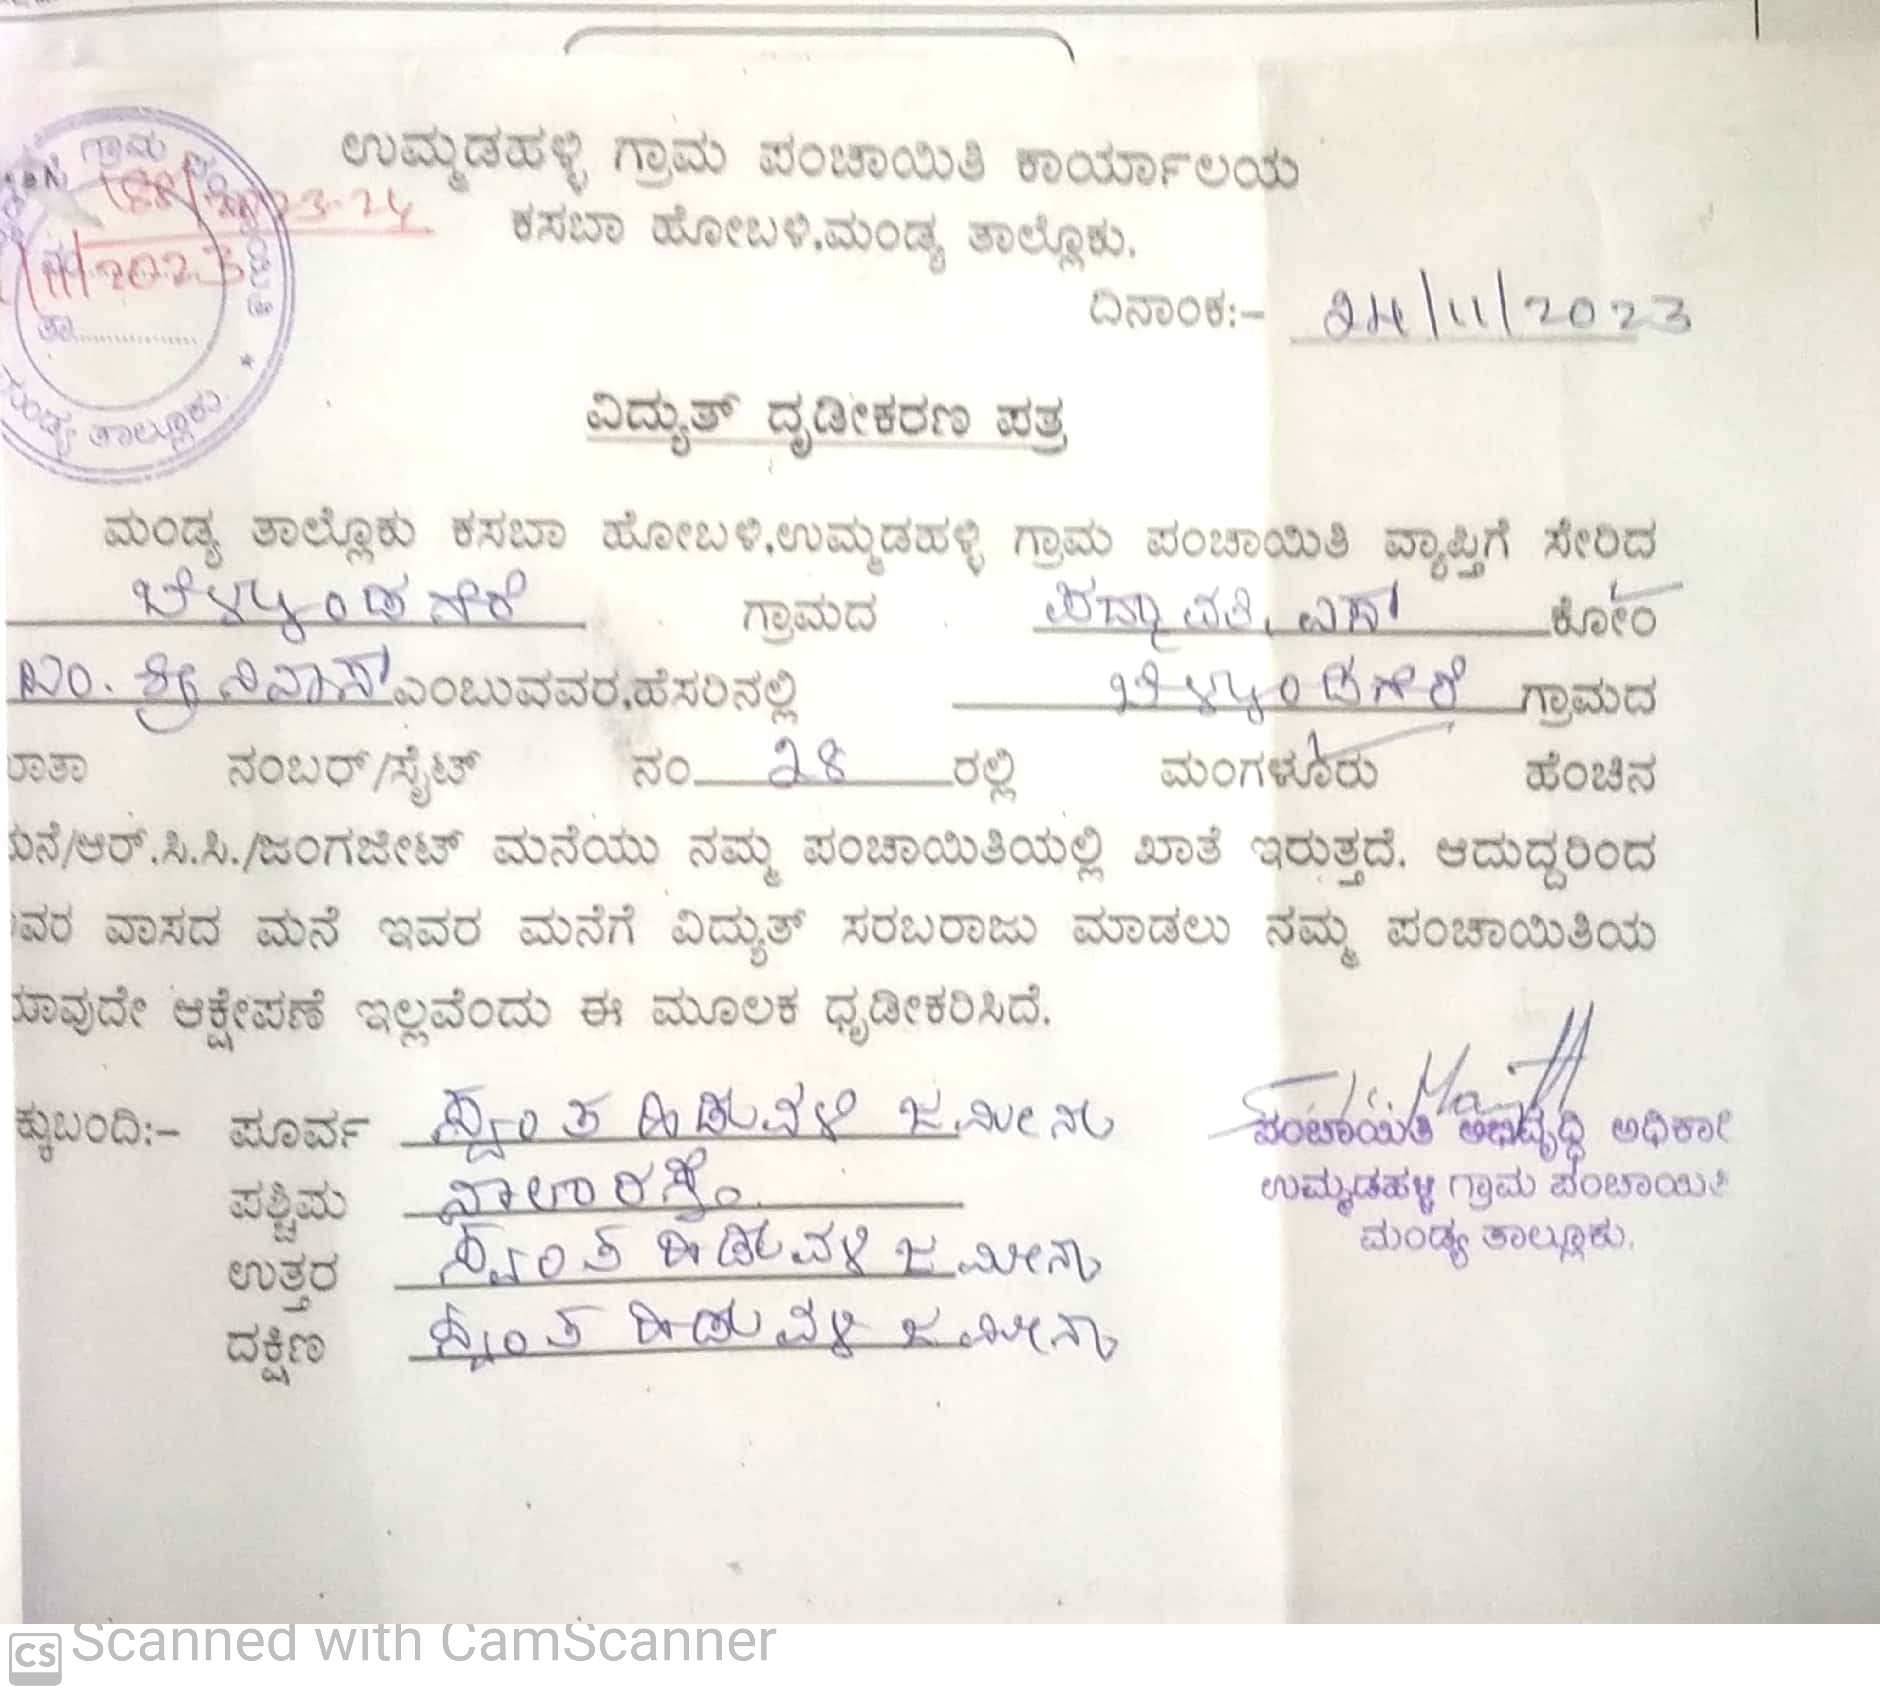 ಉಮ್ಮಡಹಳ್ಳಿ ಗ್ರಾಮ ಪಂಚಾಯಿತಿ ಕಾರ್ಯಾಲಯ
ಕಸಬಾ ಹೋಬಳಿ.ಮಂಡ್ಯ ತಾಲ್ಲೊಕು.
ಗ್ರಾಮ
188/2023-24
11/2023
ತಾ..................
ಮಂಡ್ಯ ತಾಲ್ಲೂಕು.
ದಿನಾಂಕ:- 24/11/2023
ವಿದ್ಯುತ್ ದೃಡೀಕರಣ ಪತ್ರ
ಮಂಡ್ಯ ತಾಲ್ಲೊಕು ಕಸಬಾ ಹೋಬಳಿ.ಉಮ್ಮಡಹಳ್ಳಿ ಗ್ರಾಮ ಪಂಚಾಯಿತಿ ವ್ಯಾಪ್ತಿಗೆ ಸೇರಿದ
ಬೆಳ್ಳುಂಡಗೆರೆ ಗ್ರಾಮದ ಪದ್ಮಾವತಿ. ಎಸ್ ಕೋಂ
ಶ್ರೀನಿವಾಸ್ ಎಂಬುವವರ.ಹೆಸರಿನಲ್ಲಿ ಬೆಳ್ಳುಂಡಗೆರೆ ಗ್ರಾಮದ
ಖಾತಾ ನಂಬರ್/ಸೈಟ್ ನಂ 28 ರಲ್ಲಿ ಮಂಗಳೂರು ಹೆಂಚಿನ
ಮನೆ/ಆರ್.ಸಿ.ಸಿ./ಜಂಗಜೀಟ್ ಮನೆಯು ನಮ್ಮ ಪಂಚಾಯಿತಿಯಲ್ಲಿ ಖಾತೆ ಇರುತ್ತದೆ. ಆದುದ್ದರಿಂದ
ಇವರ ವಾಸದ ಮನೆ ಇವರ ಮನೆಗೆ ವಿದ್ಯುತ್ ಸರಬರಾಜು ಮಾಡಲು ನಮ್ಮ ಪಂಚಾಯಿತಿಯ
ಯಾವುದೇ ಆಕ್ಷೇಪಣೆ ಇಲ್ಲವೆಂದು ಈ ಮೂಲಕ ಧೃಡೀಕರಿಸಿದೆ.
ಕ್ಕುಬಂದಿ:- ಪೂರ್ವ ಸ್ವಂತ ಹಿಡುವಳಿ ಜಮೀನು
ಪಶ್ಚಿಮ ನಾಲಾ ರಸ್ತೆ
ಉತ್ತರ ಸ್ವಂತ ಹಿಡುವಳಿ ಜಮೀನು
ದಕ್ಷಿಣ ಸ್ವಂತ ಹಿಡುವಳಿ ಜಮೀನು
ಪಂಚಾಯಿತಿ ಅಭಿವೃದ್ಧಿ ಅಧಿಕಾರಿ
ಉಮ್ಮಡಹಳ್ಳಿ ಗ್ರಾಮ ಪಂಚಾಯಿತಿ
ಮಂಡ್ಯ ತಾಲ್ಲೂಕು.
CS Scanned with CamScanner